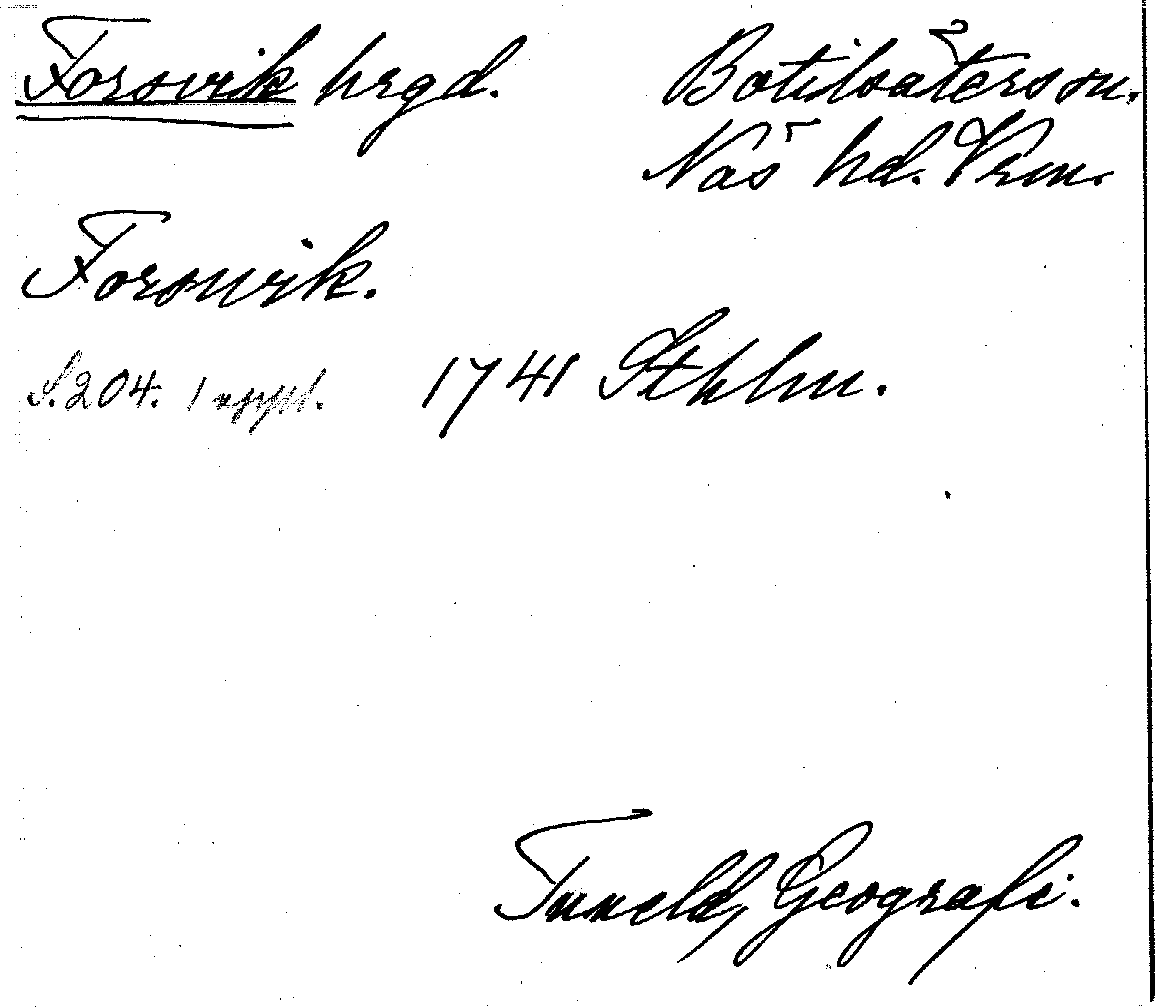 Forsvik hrgd.
Botilsäters sn.
Näs hd. Vrm.
Forswik.
S. 204. 1 uppl. 1741 Sthlm.
Tuneld, Geografi.